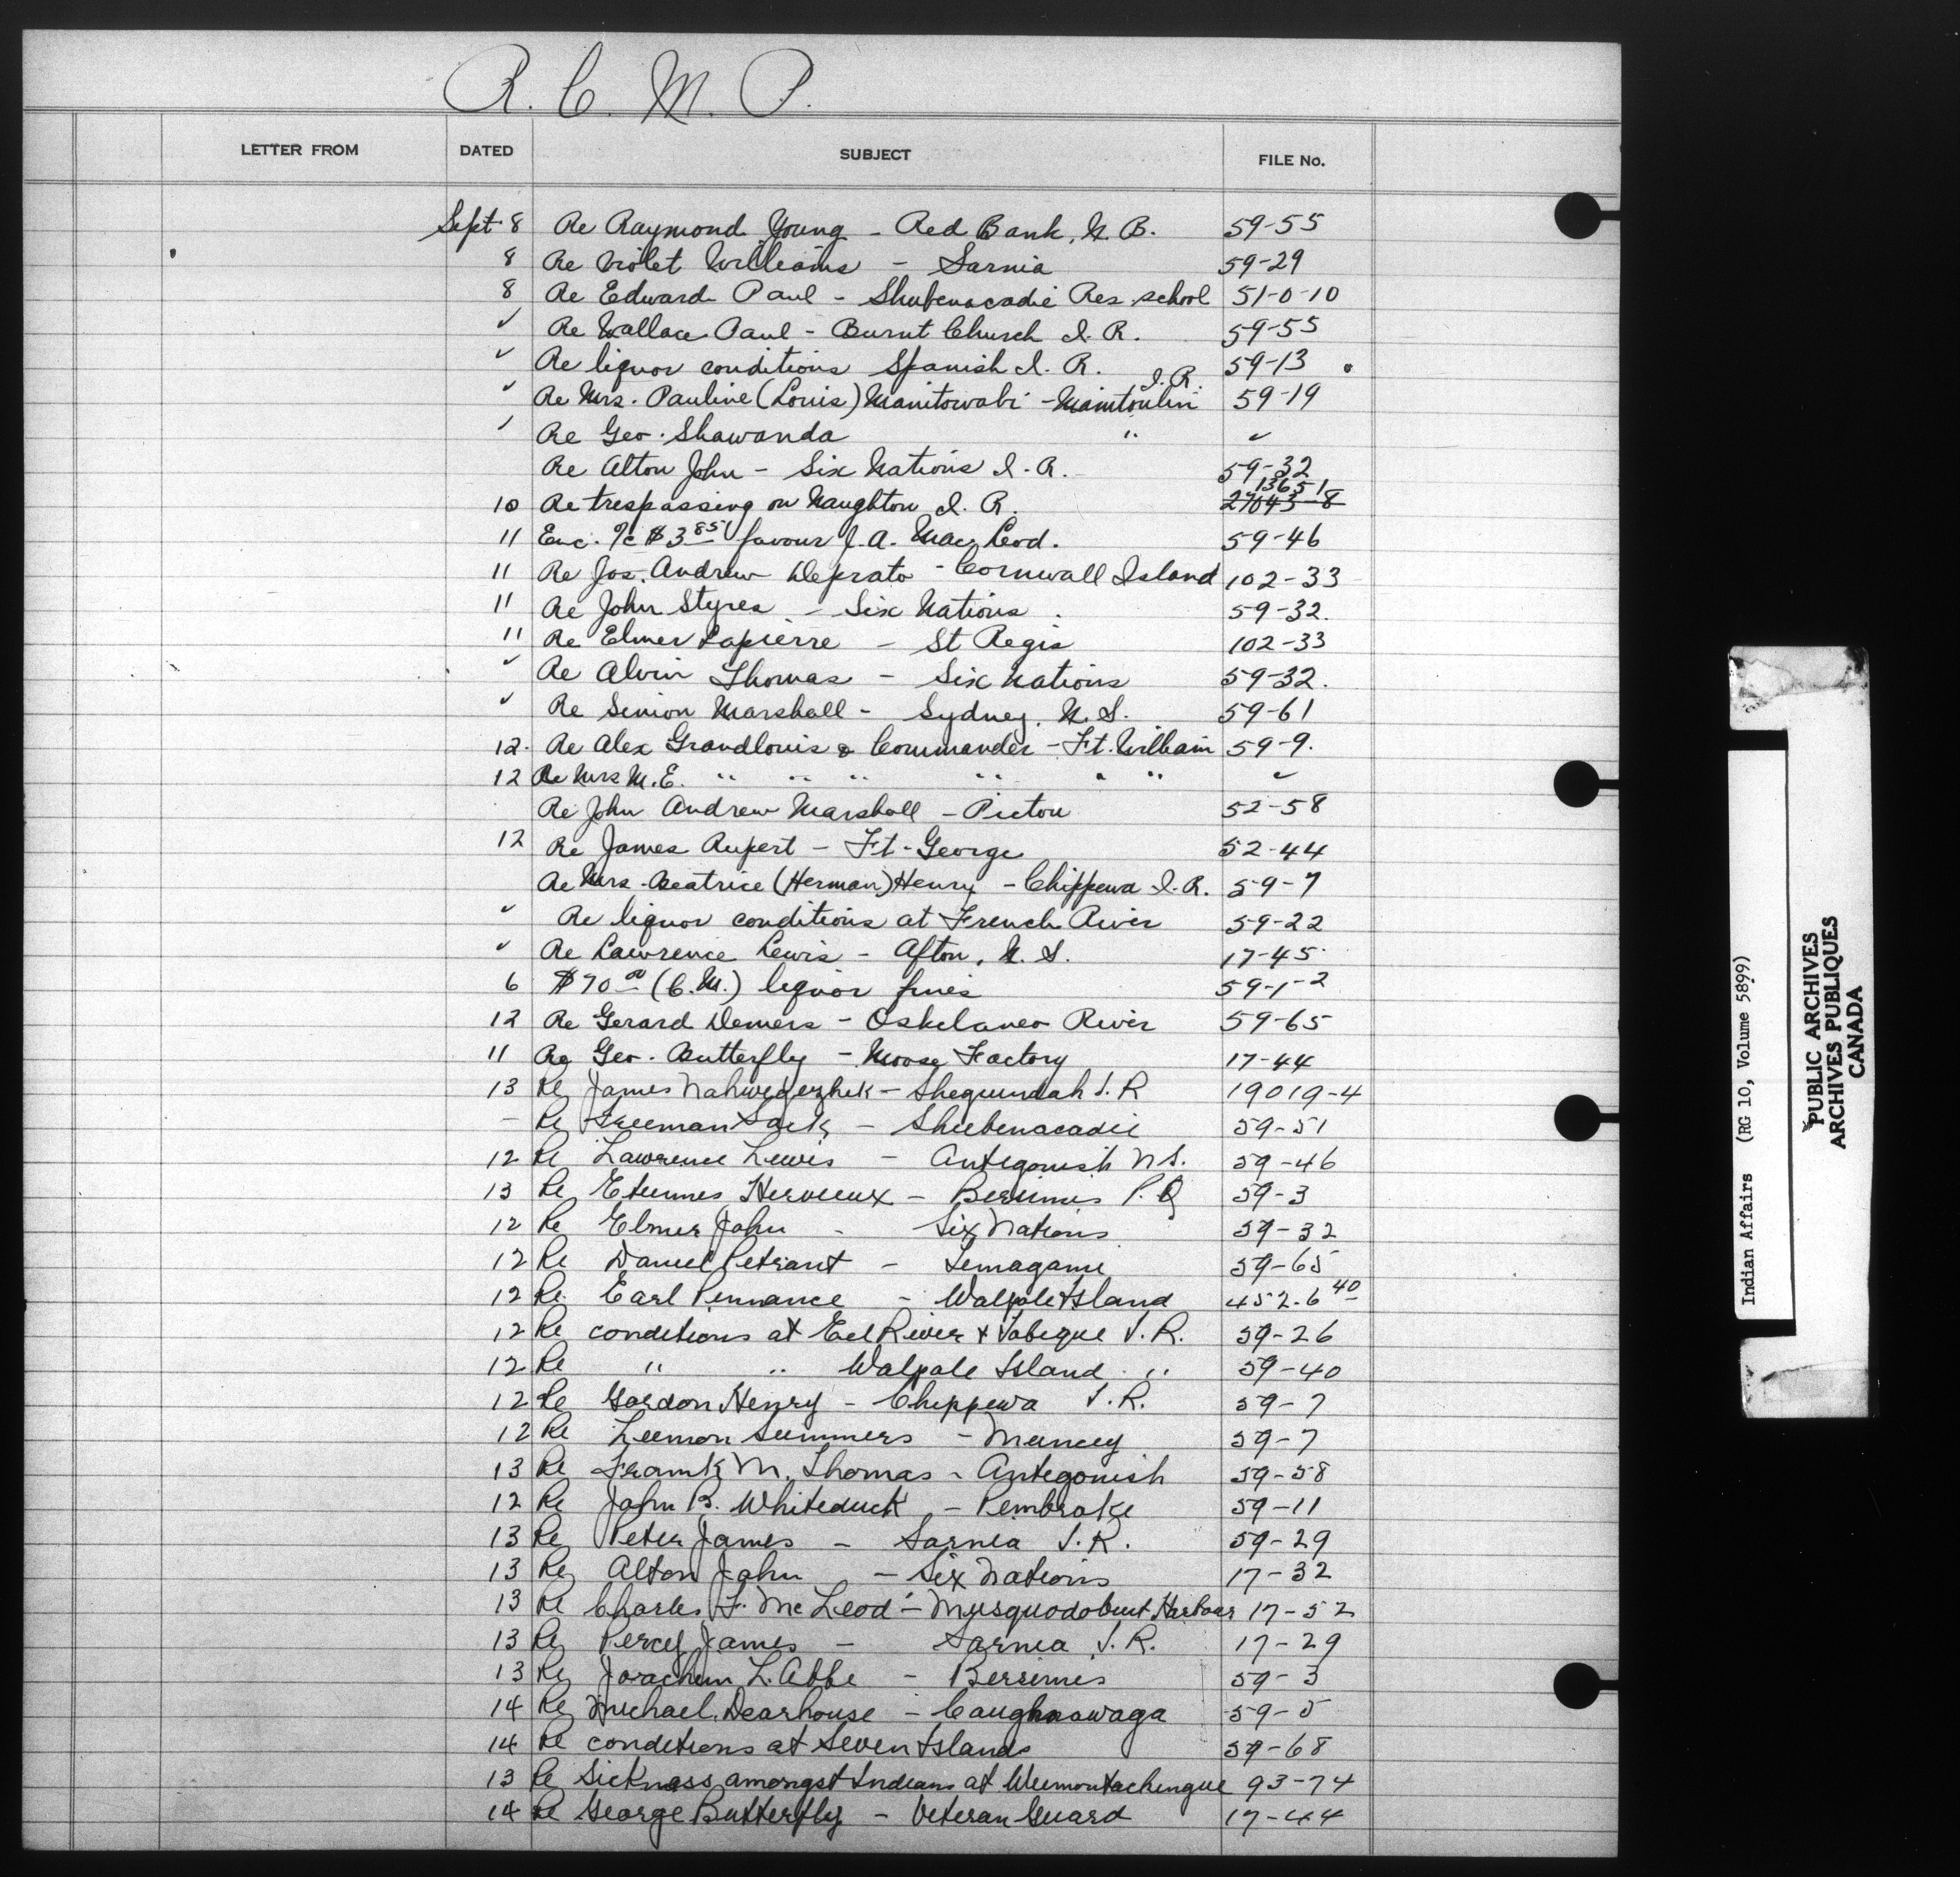 R. C. M. P.
LETTER FROM DATED SUBJECT FILE No.
Sept 8 Re Raymond Young - Red Bank, N. B. 59-55
8 Re Violet Williams - Sarnia 59-29
8 Re Edward Paul - Shubenacadie Res. school 51-0-10
✓ Re Wallace Paul - Burnt Church I. R. 59-55
✓ Re liquor conditions Spanish I. R. 59-13
✓ Re Mrs. Pauline (Louis) Manitowabi - Manitoulin I. R. 59-19
✓ Re Geo. Shawanda " ✓
Re Alton John - Six Nations I. R. 59-32
10 Re trespassing on Naughton I. R. 27043-8 13651
11 Enc. c $3.85 favour J. A. MacLeod. 59-46
11 Re Jos. Andrew Deprato - Cornwall Island 102-33
11 Re John Styres - Six Nations 59-32.
11 Re Elmer Lapierre - St Regis 102-33
✓ Re Alvin Thomas - Six Nations 59-32.
✓ Re Simon Marshall - Sydney, N. S. 59-61
12. Re Alex Grandlouis & Commander - Ft. William 59-9.
12 Re Mrs M. E. " " " " " " ✓
Re John Andrew Marshall - Pictou 52-58
12 Re James Rupert - Ft. George 52-44
Re Mrs. Beatrice (Herman) Henry - Chippewa I. R. 59-7
✓ Re liquor conditions at French River 59-22
✓ Re Lawrence Lewis - Afton, N. S. 17-45
6 $70 00 (C. M.) liquor fines 59-1-2
12 Re Gerard Demers - Oskelaneo River 59-65
11 Re Geo. Butterfly - Moose Factory 17-44
13 Re James Nahwegezhik - Sheguindah I. R 19019-4
- Re Freeman Sack - Shubenacadie 59-51
12 Re Lawrence Lewis - Antegonish N. S. 59-46
13 Re Etiennes Hervieux - Bersimis P. Q 59-3
12 Re Elmer John - Six Nations 59-32
12 Re Daniel Petrant - Temagami 59-65
12 Re. Earl Pennance - Walpole Island 452-6 40
12 Re conditions at Eel River & Tobique I. R. 59-26
12 Re " " Walpole Island " 59-40
12 Re Gordon Henry - Chippewa I. R. 59-7
12 Re Leemon Summers - Muncey 59-7
13 Re Frank M. Thomas - Antegonish 59-58
12 Re John B. Whiteduck - Pembroke 59-11
13 Re Peter James - Sarnia I. R. 59-29
13 Re Alton John - Six Nations 17-32
13 Re Charles F. McLeod - Musquodobuit Harbour 17-52
13 Re Percy James - Sarnia I. R. 17-29
13 Re Joachim L. Abbe - Bersimis 59-3
14 Re Michael Dearhouse - Caughnawaga 59-5
14 Re conditions at Seven Islands 59-68
13 Re Sickness amongst Indians at Weemontachingue 93-74
14 Re George Butterfly - Veteran Guard 17-44
Indian Affairs (RG 10, Volume 5899)
PUBLIC ARCHIVES
ARCHIVES PUBLIQUES
CANADA